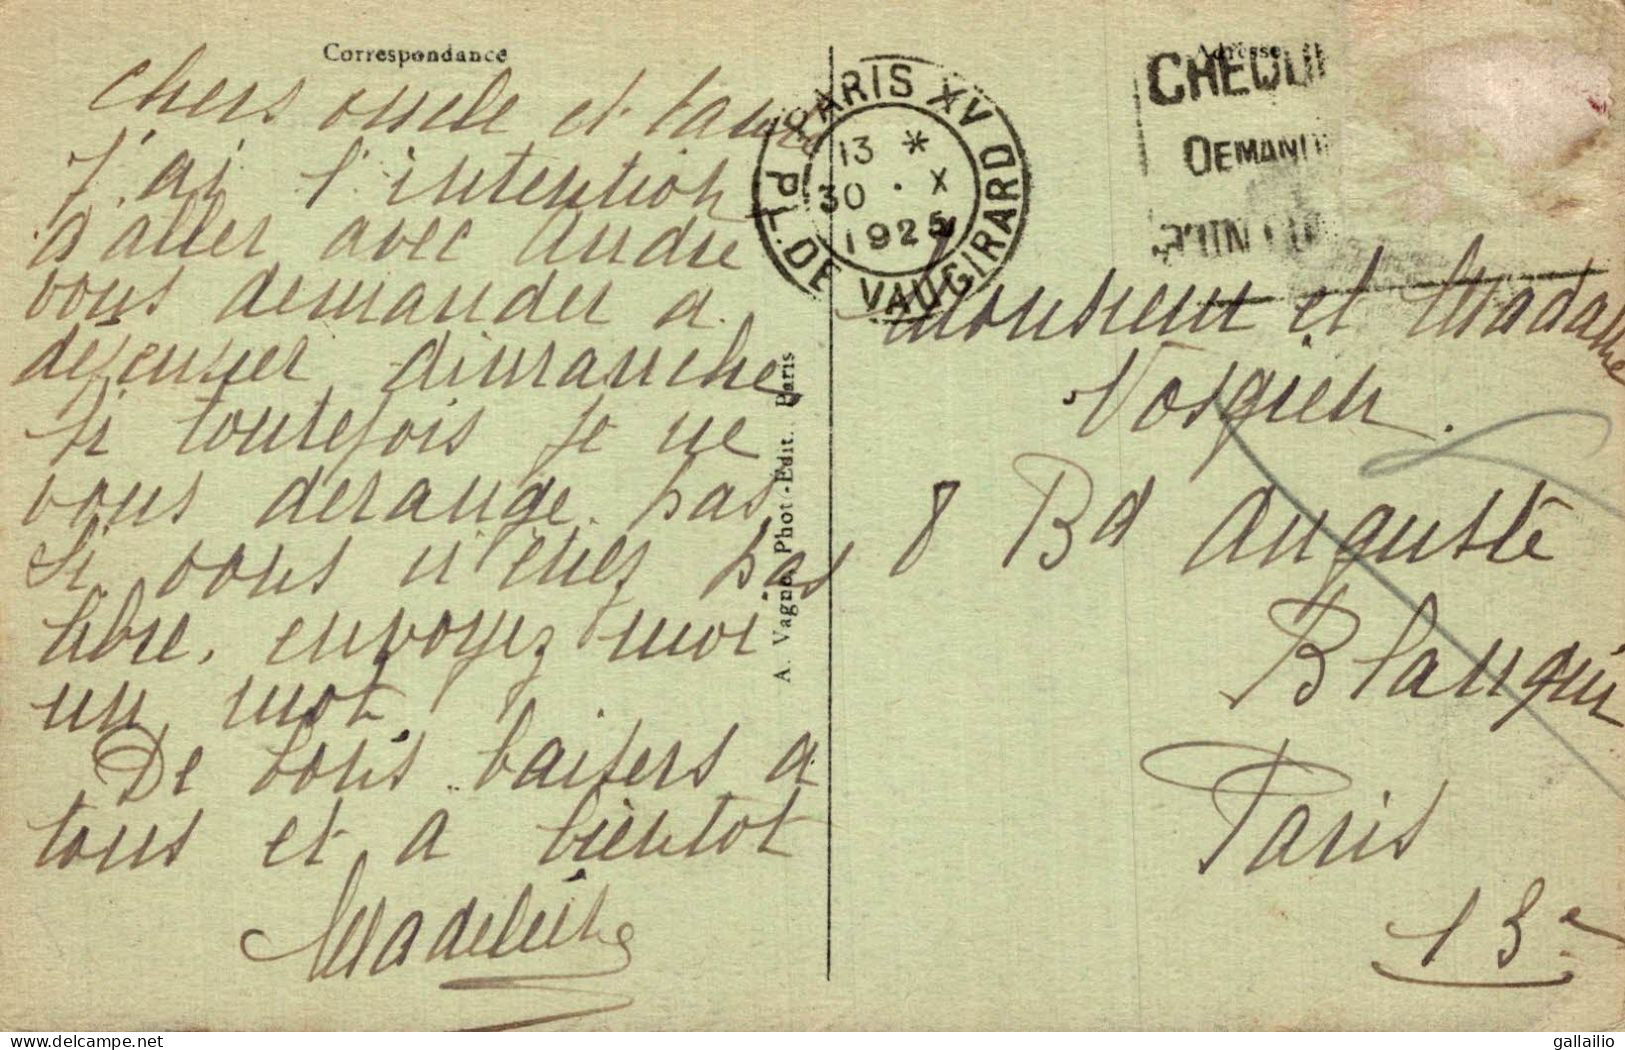 Correspondance
Chers oncle et tante
J'ai l'intention
d'aller avec André
vous demander a
dejeuner dimanche
si toutefois je ne
vous derange pas
Si vous n'etiez pas
libre, envoyez moi
un mot
De bons baisers a
tous et a bientot
Madeleine
A. Vagno, Phot.-Edit.. Paris
PARIS XV
PL. DE VAUGIRARD
13 *
30 · X
1925
Adresse
CHEQU
DEMAND
Monsieur et Madame
Vosgien.
8 Bd Auguste
Blanqui
Paris
13e
gallailio